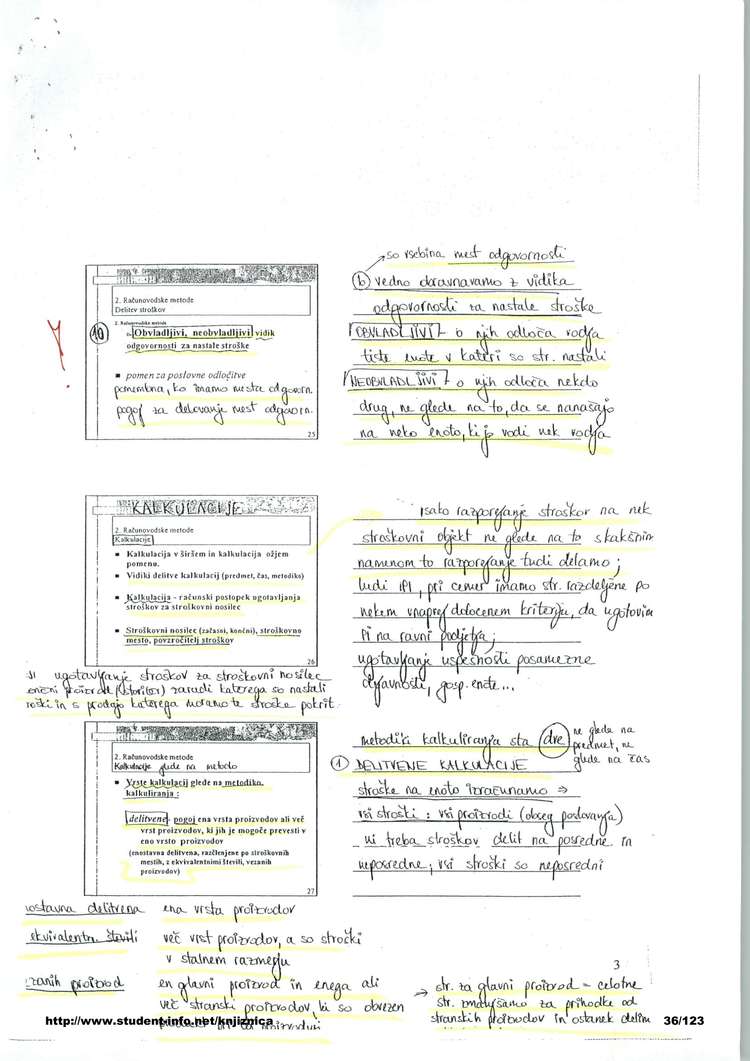 so vsebina mest odgovornosti
(b) vedno obravnavamo z vidika
odgovornosti za nastale stroške
OBVLADLJIVI - o njih odloča vodja
tiste enote v kateri so str. nastali
NEOBVLADLJIVI - o njih odloča nekdo
drug, ne glede na to, da se nanašajo
na neko enoto, ki jo vodi nek vodja
2. Računovodske metode
Delitev stroškov
2. Računovodske metode
10
Obvladljivi, neobvladljivi vidik
odgovornosti za nastale stroške
▪ pomen za poslovne odločitve
pomembna, ko imamo mesta odgovorn.
pogoj za delovanje mest odgovorn.
25
KALKULACIJE
2. Računovodske metode
Kalkulacije
▪ Kalkulacija v širšem in kalkulacija ožjem
pomenu.
▪ Vidiki delitve kalkulacij (predmet, čas, metodiko)
▪ Kalkulacija - računski postopek ugotavljanja
stroškov za stroškovni nosilec
▪ Stroškovni nosilec (začasni, končni), stroškovno
mesto, povzročitelj stroškov
26
razporejanje stroškov na nek
stroškovni objekt ne glede na to s kakšnim
namenom to razporejanje tudi delamo;
tudi IPI, pri čemer imamo str. razdeljene po
nekem vnaprej določenem kriteriju, da ugotovim
PI na ravni podjetja;
ugotavljanje uspešnosti posamezne
dejavnosti, gosp. enote...
ugotavljanje stroškov za stroškovni nosilec
proizvod (storitev) zaradi katerega so nastali
in s prodajo katerega moramo te stroške pokrit.
2. Računovodske metode
Kalkulacije glede na metodo
▪ Vrste kalkulacij glede na metodiko
kalkuliranja :
delitvene- pogoj ena vrsta proizvodov ali več
vrst proizvodov, ki jih je mogoče prevesti v
eno vrsto proizvodov
(enostavna delitvena, razčlenjene po stroškovnih
mestih, z ekvivalentnimi števili, vezanih
proizvodov)
27
metodiki kalkuliranja sta dve
ne glede na
predmet, ne
glede na čas
1 DELITVENE KALKULACIJE
stroške na enoto izračunamo ⇒
vsi stroški : vsi proizvodi (obseg poslovanja)
ni treba stroškov delit na posredne in
neposredne; vsi stroški so neposredni
delitvena ena vrsta proizvodov
ekvivalentn. števili več vrst proizvodov, a so stroški
v stalnem razmerju
proizvod en glavni proizvod in enega ali
več stranski proizvodov, ki so obvezen
→ str. za glavni proizvod = celotne
str. zmanjšamo za prihodke od
stranskih proizvodov in ostanek delim
3
http://www.student-info.net/knjiznica
36/123